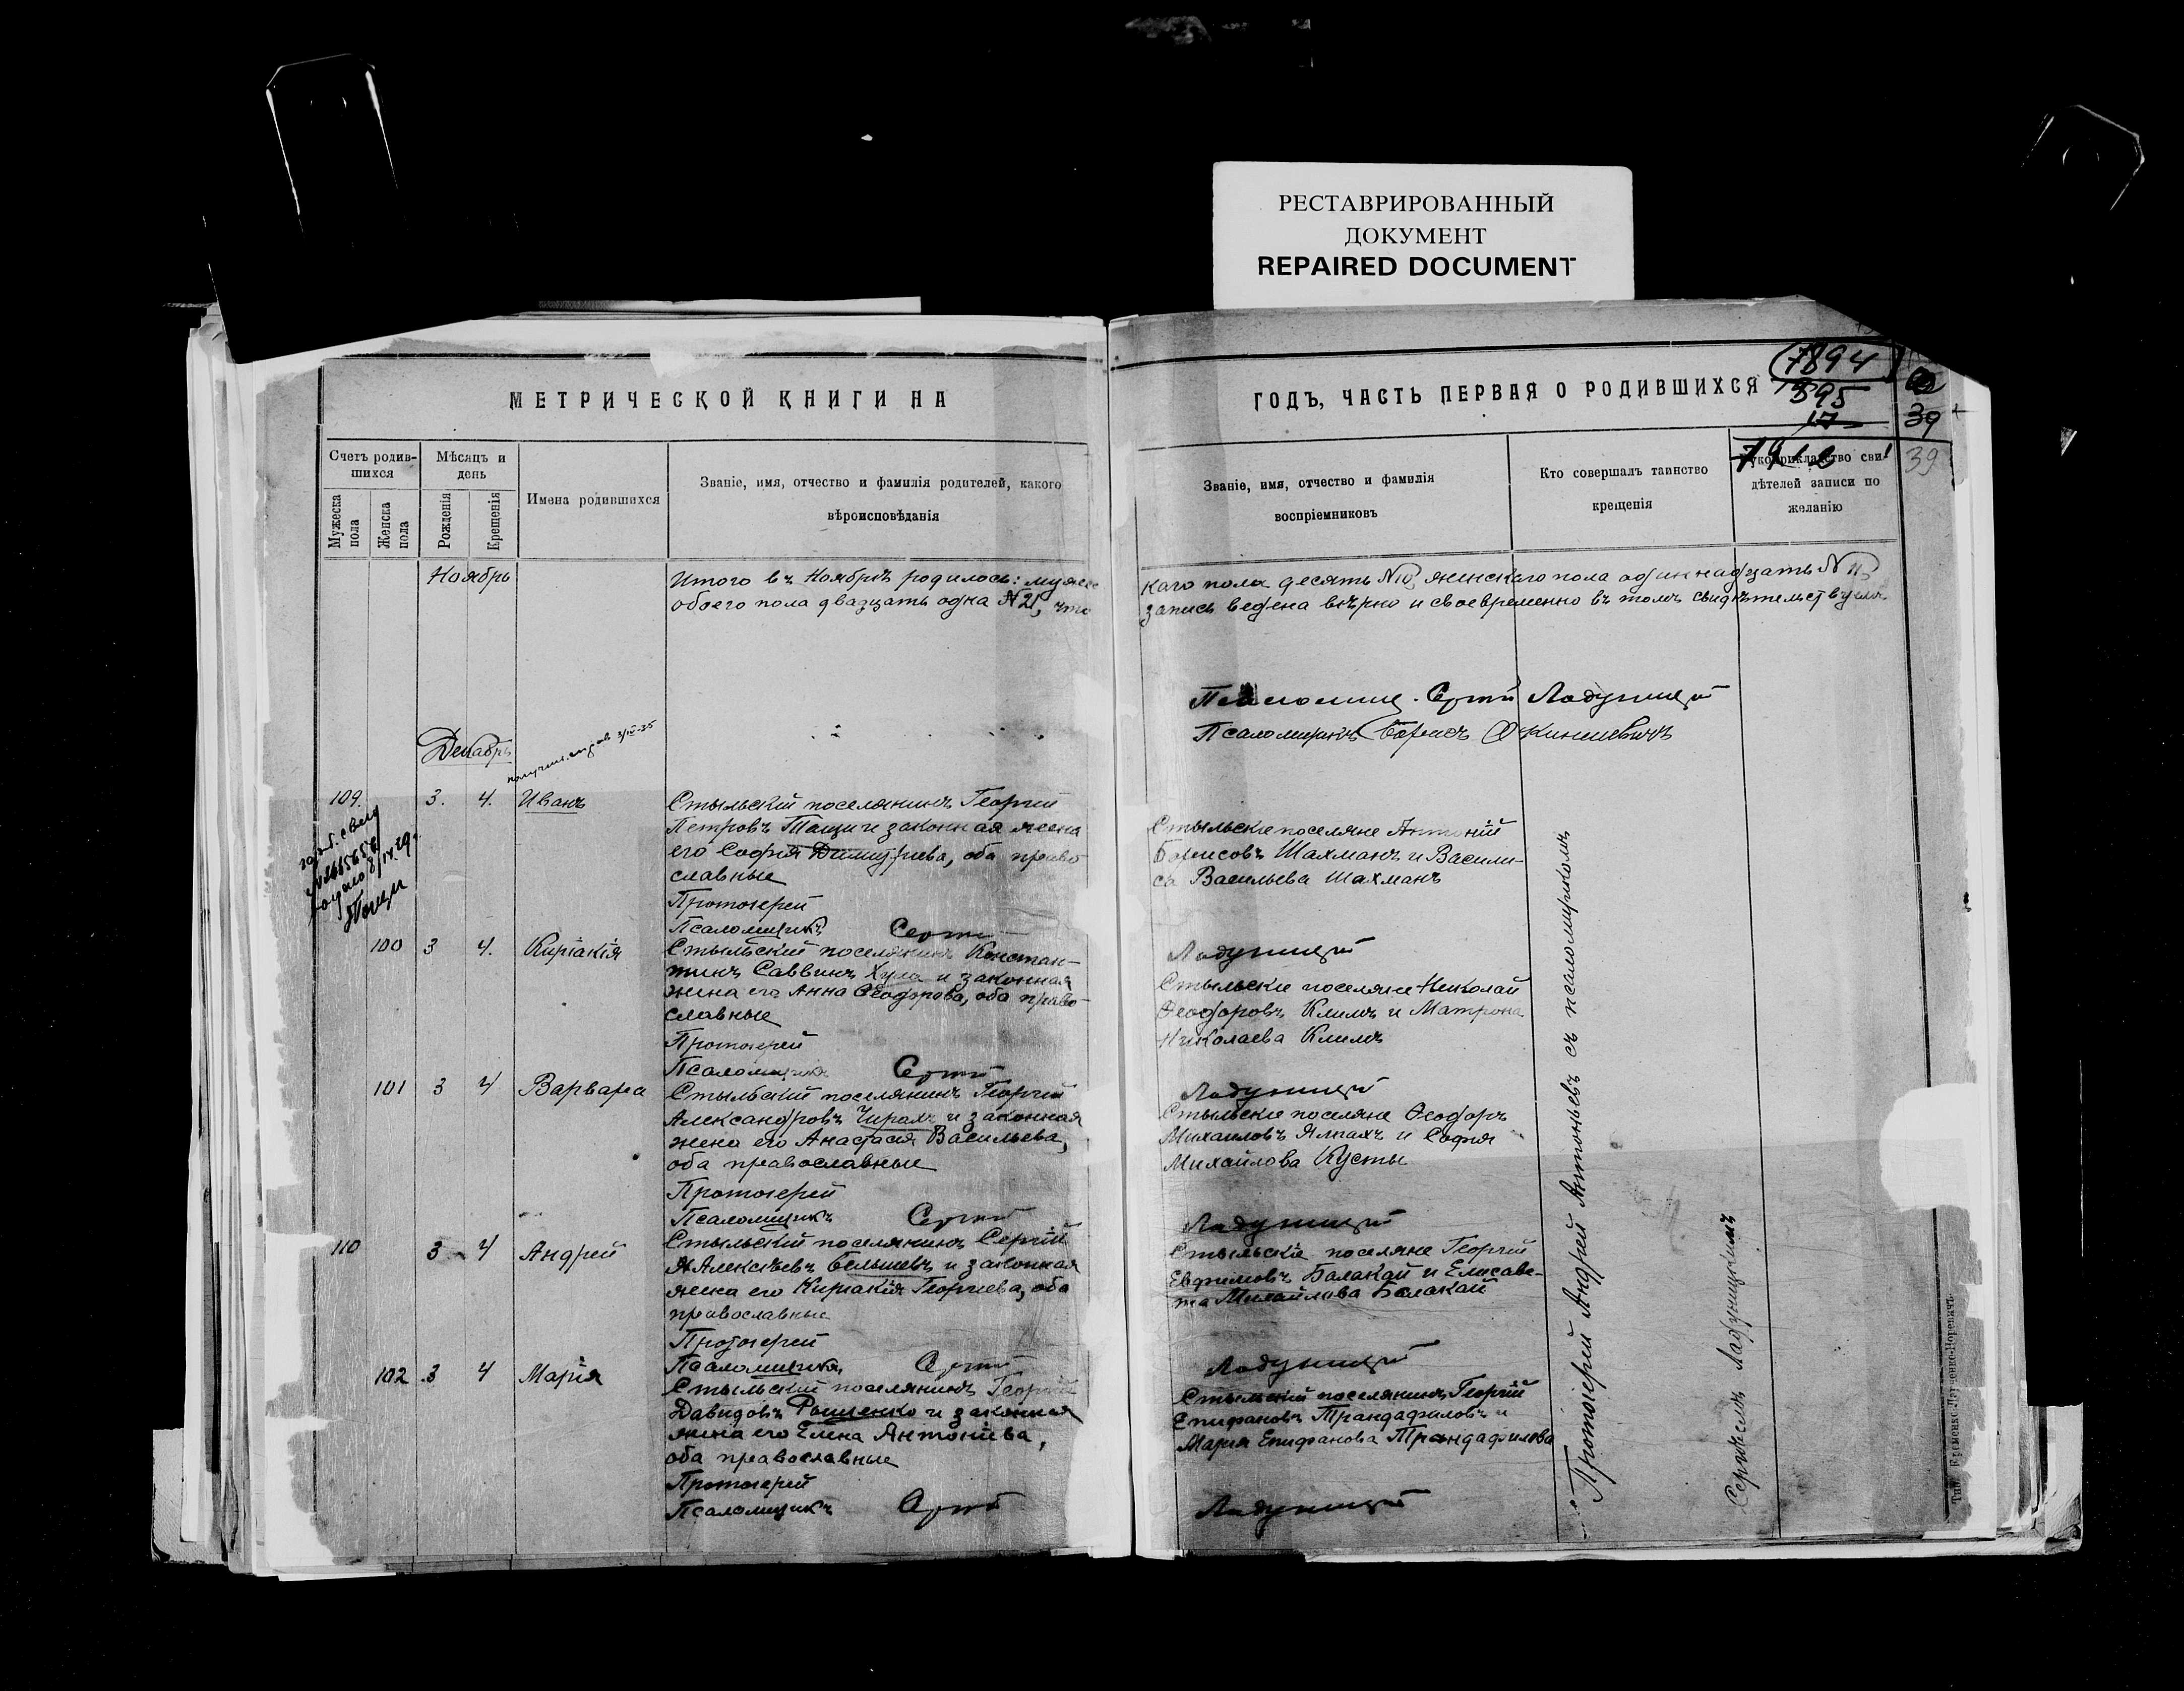 РЕСТАВРИРОВАННЫЙ
ДОКУМЕНТ
REPAIRED DOCUMENT
МЕТРИЧЕСКОЙ КНИГИ НА
Счетъ родив-
шихся
Мужеска
пола
Женска
пола
Мѣсяцъ и
день
Рожденія
Крещенія
Имена родившихся
Званіе, имя, отчество и фамилія родителей, какого
вѣроисповѣданія
Ноябрь
Итого въ Ноябрѣ родилось: мужес
обоего пола двадцать одна №21, что
Декабрь
109. 3. 4. Иванъ
Стыльскій поселянинъ Георгій
Петровъ Тащи и законная жена
его Софія Димитріева, оба право
славные
Протоіерей
Псаломщикъ Сергій
100 3 4. Киріакія
Стыльскій поселянинъ Констан-
тинъ Саввинъ Хула и законная
жена его Анна Ѳеодорова, оба право-
славные
Протоіерей
Псаломщикъ Сергій
101 3 4 Варвара
Стыльскій поселянинъ Георгій
Александровъ Чирахъ и законная
жена его Анастасія Васильева,
оба православные
Протоіерей
Псаломщикъ Сергій
110 3 4 Андрей
Стыльскій поселянинъ Сергій
Алексѣевъ Бѣлышевъ и законная
жена его Киріакія Георгіева, оба
православные
Протоіерей
Псаломщикъ Сергій
102 3 4 Марія
Стыльскій поселянинъ Георгій
Давидовъ Фащенко и законная
жена его Елена Антоніева,
оба православные
Протоіерей
Псаломщикъ Сергій
ГОДЪ, ЧАСТЬ ПЕРВАЯ О РОДИВШИХСЯ
7894
395
17
7916
39
39
Званіе, имя, отчество и фамилія
воспріемниковъ
Кто совершалъ таинство
крещенія
Рукоприкладство сви-
дѣтелей записи по
желанію
каго пола десять №10, женскаго пола одиннадцать №11,
запись ведена вѣрно и своевременно въ томъ свидѣтельствуемъ
Сергій Ладущицій
Псаломщикъ Борисъ
Стыльскіе поселяне Антоній
Борисовъ Шахманъ и Васили-
са Васильева Шахманъ
Ладущицій
Стыльскіе поселяне Николай
Ѳеодоровъ Климъ и Матрона
Николаева Климъ
Ладущицій
Стыльскіе поселяне Ѳеодоръ
Михаиловъ Ялпахъ и Софія
Михайлова Кусты
Ладущицій
Стыльскіе поселяне Георгій
Евфимовъ Балакай и Елисаве-
та Михайлова Балакай
Ладущицій
Стыльскій поселянинъ Георгій
Епифановъ Трандафиловъ и
Марія Епифанова Трандафилова
Ладущицій
Протоіерей Андрей Антоньевъ съ псаломщикомъ
Сергіемъ Ладущиціимъ